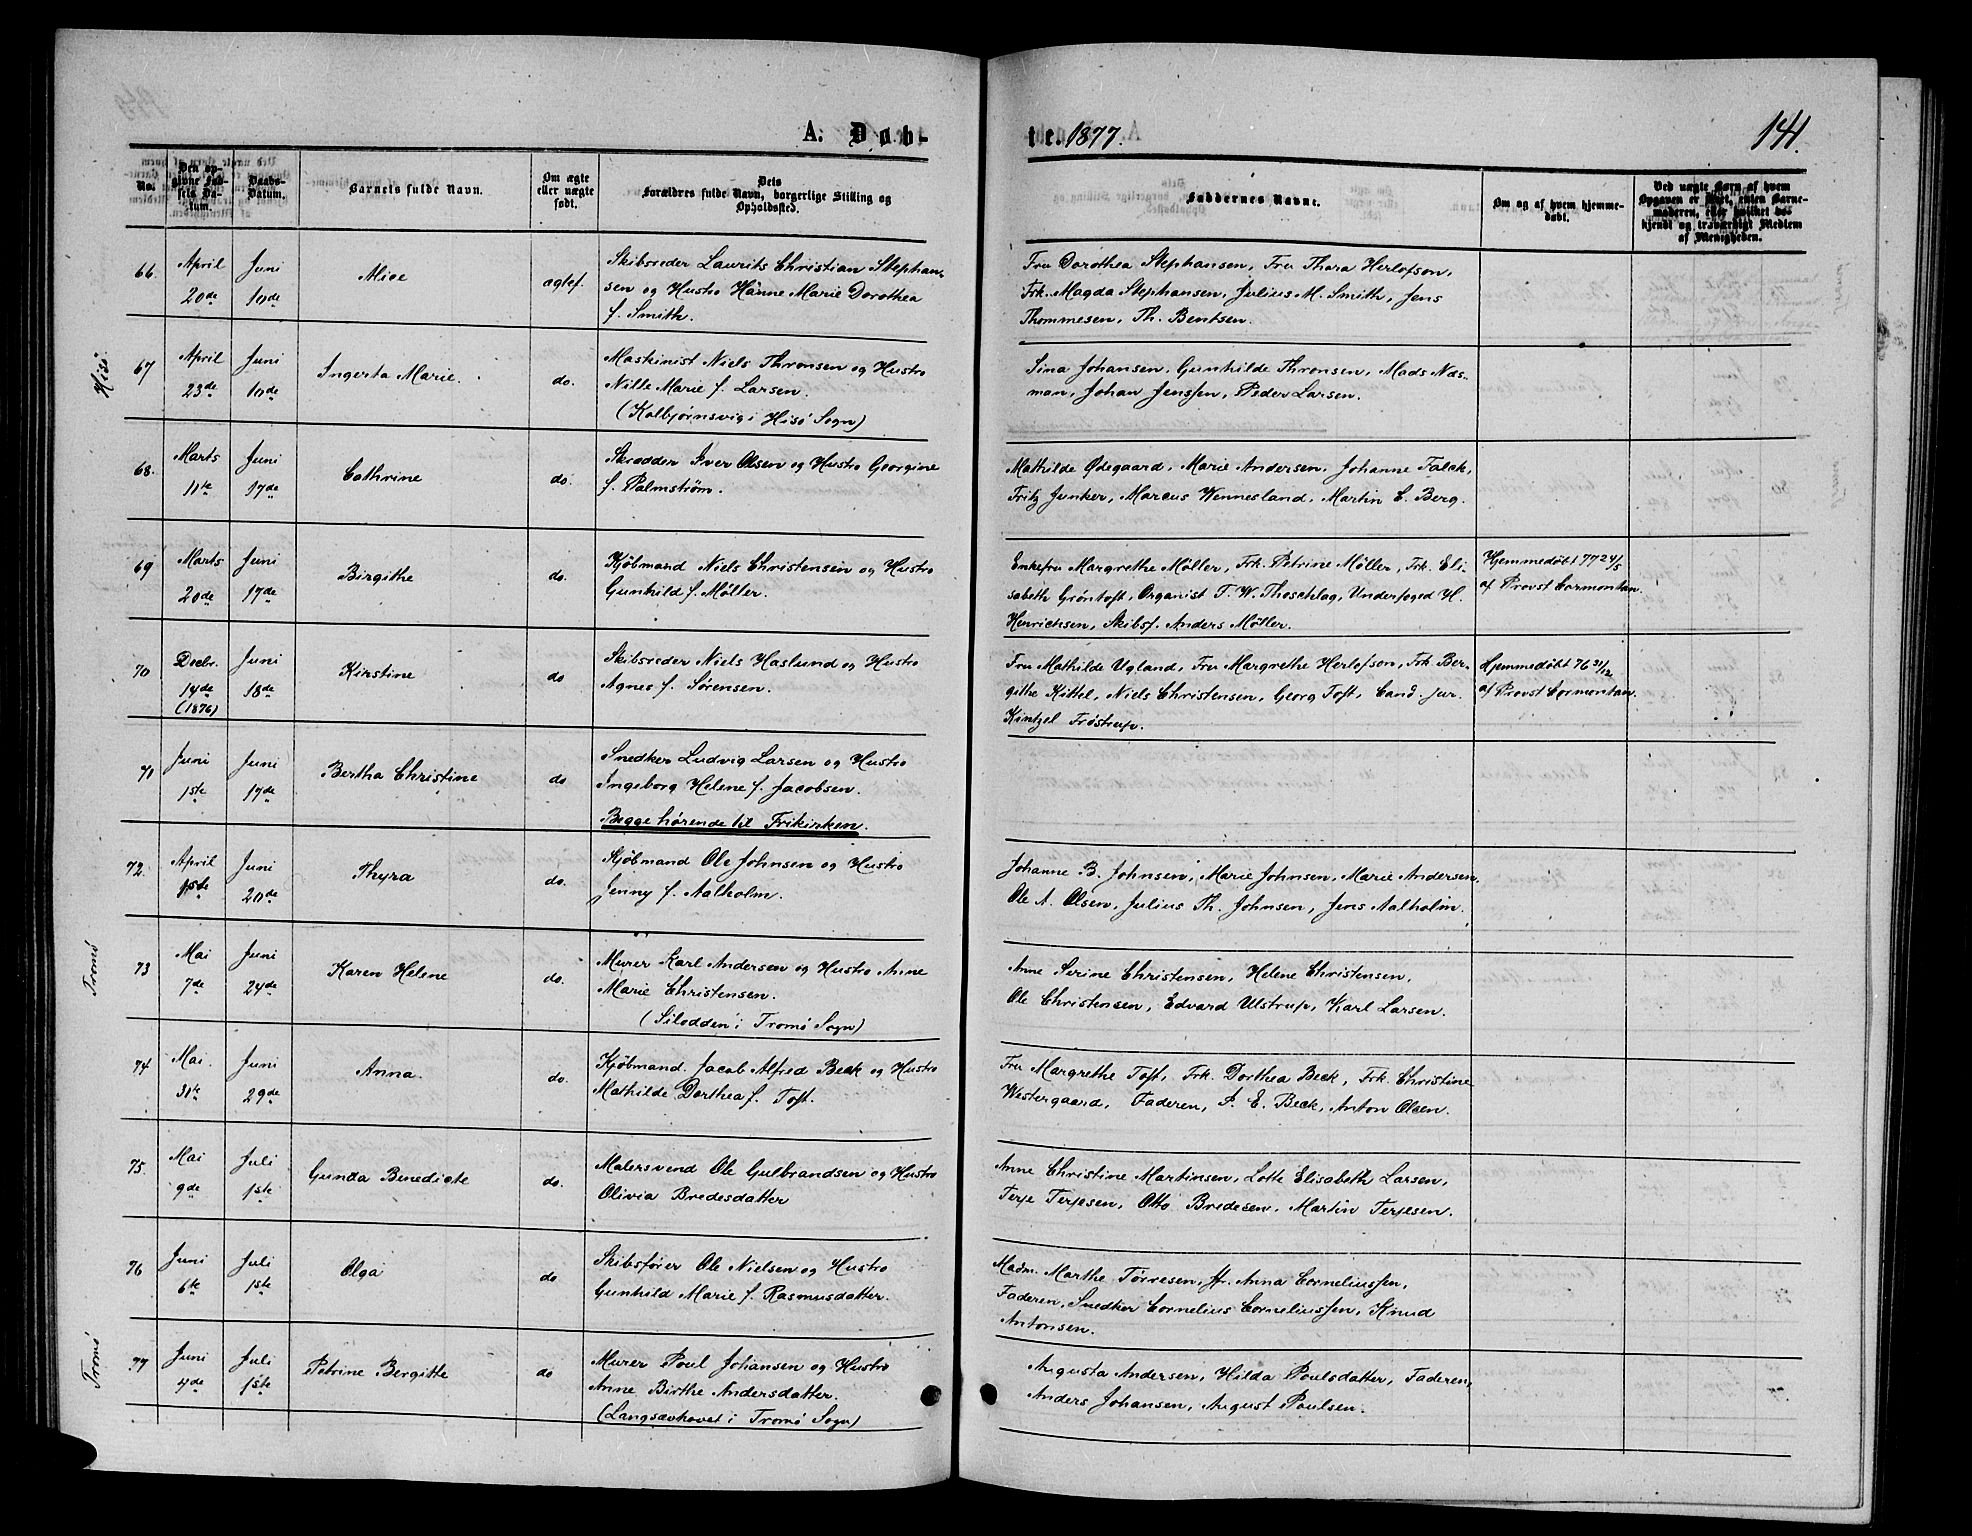 A. Døb-
te. 1877.
141.
No.
Den op-
givne Fød-
sels Da-
tum.
Daabs-
Datum.
Barnets fulde Navn.
Om ægte
eller uægte
født.
Dets
Forældres fulde Navn, borgerlige Stilling og
Opholdssted.
Faddernes Navne.
Om og af hvem hjemme-
døbt.
Ved uægte Børn af hvem
Opgaven er skeet, enten Barne-
moderen, eller hvilket be-
kjendt og troværdigt Medlem
af Menigheden.
66.
April
20de
Juni
10de
Alice
ægtef.
Skibsreder Laurits Christian Stephan-
sen og Hustro Hanne Marie Dorothea
f. Smith.
Fru Dorothea Stephansen, Fru Thora Herlofson,
Frk. Magda Stephansen, Julius M. Smith, Jens
Thommesen, Th. Bentsen.
Hisø.
67
April
23de
Juni
10de
Ingerta Marie.
do.
Maskinist Niels Thronsen og Hustro
Nille Marie f. Larsen.
(Kolbjørnsvig i Hisø Sogn)
Sina Johansen, Gunhilde Thronsen, Mads Næs-
man, Johan Jenssen, Peder Larsen.
68.
Marts
11te
Juni
17de
Cathrine
do.
Skrædder Iver Olsen og Hustro Georgine
f. Palmstrøm.
Mathilde Ødegaard, Marie Andersen, Johanne Falck,
Fritz Junker, Marcus Wennesland, Martin E. Berg.
69
Marts
20de
Juni
17de
Birgithe
do.
Kjøbmand Niels Christensen og Hustro
Gunhild f. Møller.
Enkefru Margrethe Møller, Frk. Petrine Møller, Frk. Eli-
sabeth Grøntoft, Organist F. W. Thoschlag, Underfoged H.
Henrichsen, Skibsf. Anders Møller.
Hjemmedøbt 77 24/5
af Provst Cormontan.
70
Decbr.
14de
(1876)
Juni
18de
Kirstine
do
Skibsreder Niels Haslund og Hustro
Agnes f. Sørensen.
Fru Mathilde Ugland, Fru Margrethe Herlofson, Frk Ber-
githe Kittel, Niels Christensen, Georg Toft, Cand. jur.
Kintzel Trøstrup.
Hjemmedøbt 76 31/12
af Provst Cormontan.
71
Juni
1ste
Juni
17de
Bertha Christine
do
Snedker Ludvig Larsen og Hustro
Ingeborg Helene f. Jacobsen.
Begge hørende til Frikirken.
72.
April
1ste
Juni
20de
Thyra
do.
Kjøbmand Ole Johnsen og Hustro
Jenny f. Aalholm.
Johanne B. Johnsen, Marie Johnsen, Marie Andersen,
Ole A. Olsen, Julius Th. Johnsen, Jens Aalholm.
Tromø
73
Mai
7de
Juni
24de
Karen Helene
do.
Murer Karl Andersen og Hustro Anne
Marie Christensen.
(Silodden i Tromø Sogn)
Anne Serine Christensen, Helene Christensen,
Ole Christensen, Edvard Ulstrup, Karl Larsen.
74
Mai.
31te
Juni
29de
Anna.
do.
Kjøbmand Jacob Alfred Beck og Hustro
Mathilde Dorthea f. Toft.
Fru Margrethe Toft, Frk. Dorthea Beck, Frk. Christine
Westergaard, Faderen, P. E. Beck, Anton Olsen.
75.
Mai
9de
Juli
1ste
Gunda Benedicte
do.
Malersvend Ole Gulbrandsen og Hustro
Olivia Bredesdatter
Anne Christine Martinsen, Lotte Elisabeth Larsen,
Terje Terjesen, Otto Bredesen, Martin Terjesen.
76
Juni
6te
Juli
1ste
Olga
do
Skibsfører Ole Nielsen og Hustro
Gunhild Marie f. Rasmusdatter.
Madm. Marthe Tørresen, Anna Corneliussen,
Faderen, Snedker Cornelius Corneliussen, Knud
Antonsen.
Tromø
77
Juni
4de
Juli
1ste
Petrine Bergitte
do
Murer Poul Johansen og Hustro
Anne Birthe Andersdatter.
(Langsævhovet i Tromø Sogn)
Augusta Andersen, Hilda Poulsdatter, Faderen,
Anders Johansen, August Poulsen.